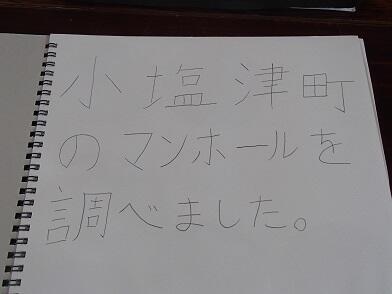 小塩津町
のマンホールを
調べました。